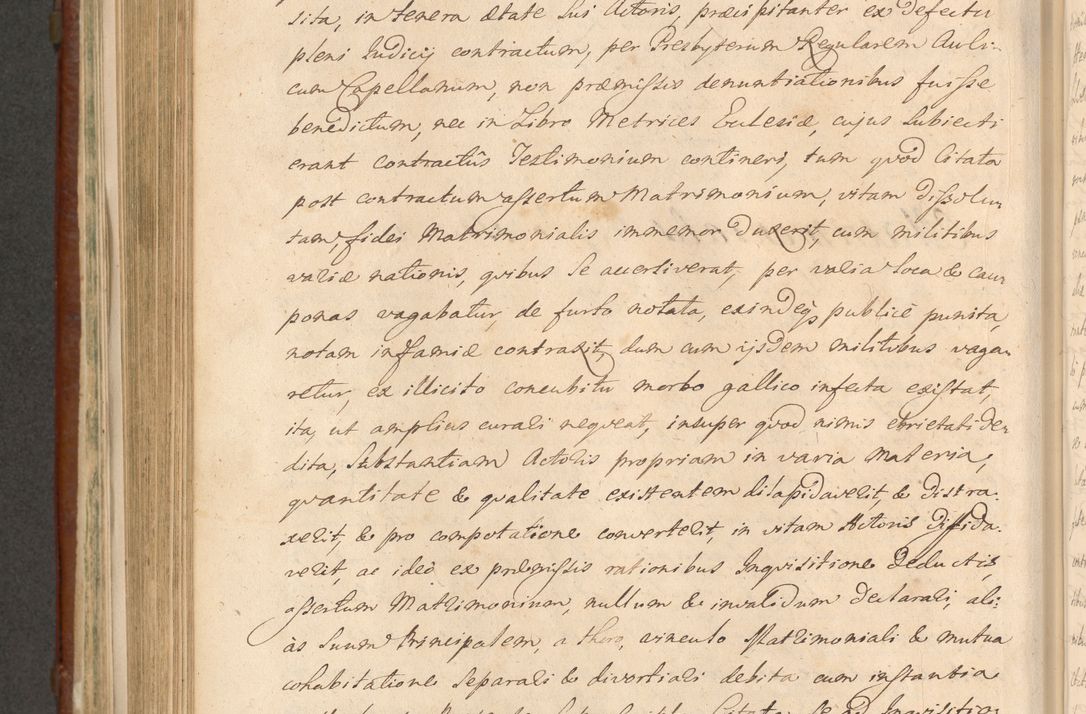 sita, in tenera ætate sui Actoris, præcipitanter ex defectu
pleni Iudicij contractum, per Presbyterum Regularem Auli-
cum Capellanum, non præmissis denuntiationibus fuisse
benedictum, nec in Libro Metrices Eclesiæ, cujus Subiecti
erant contractûs Testimonium contineri, tum quod Citata
post contractum assertum Matrimonium, vitam dissolu-
tam, fidei Matrimonialis immemor duxerit, cum militibus
variæ nationis, quibus se auertiverat, per varia loca & cau-
ponas vagabatur, de furto notata, exindeq3 publicè punita,
notam infamiæ contraxit, dum cum ijsdem militibus vaga-
retur, ex illicito concubitu morbo gallico infecta existat,
ita, ut amplius curari nequeat, insuper quod nimis ebrietati de-
dita, Substantiam Actoris propriam in varia Materia,
quantitate & qualitate existentem dilapidaverit, & distra-
xerit, & pro computatione converterit, in vitam Actoris diffida-
verit, ac ideò ex præmissis rationibus Inquisitione deductis,
assertum Matrimonium, nullum & invalidum declarari, ali-
às Suum Principalem, a thoro, vinculo Matrimoniali & mutua
cohabitatione separari & divortiari debita cum instantia